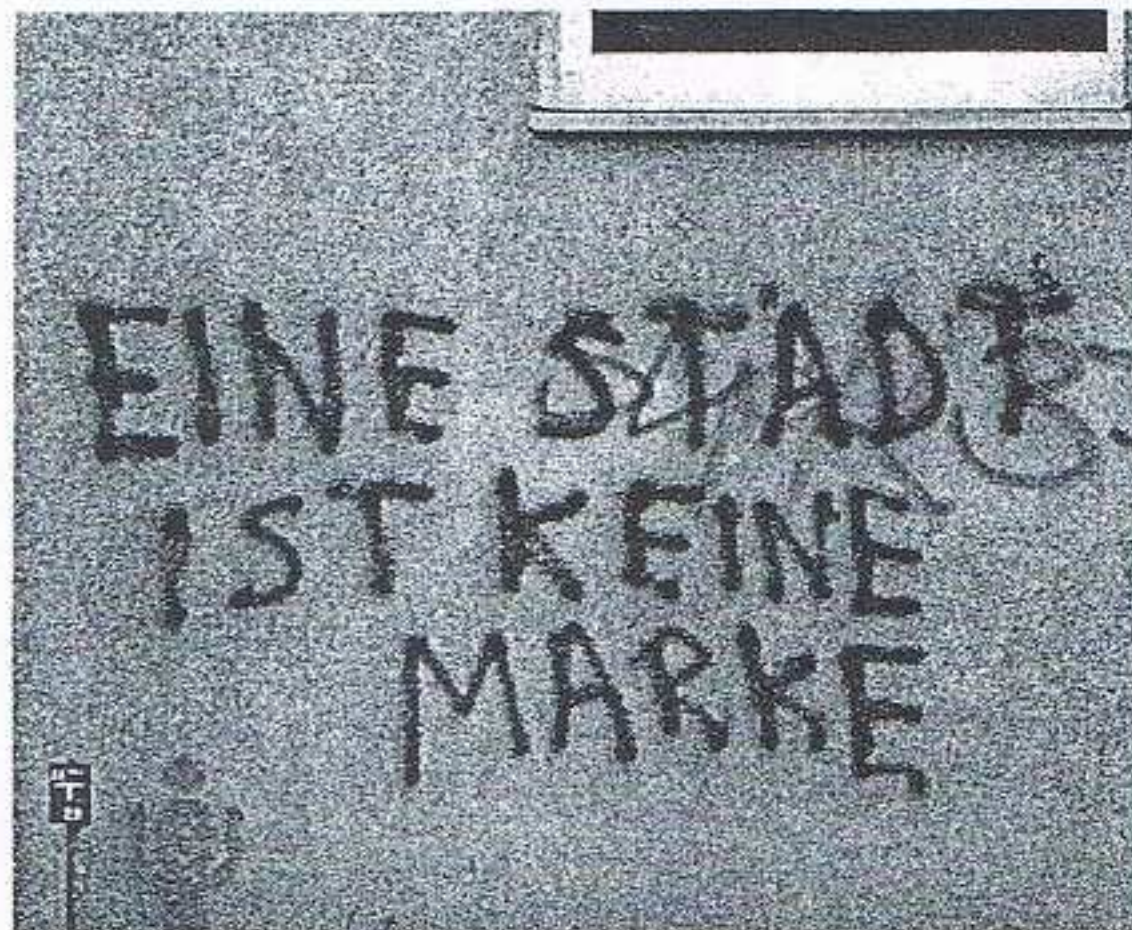 EINE STADT
IST KEINE
MARKE